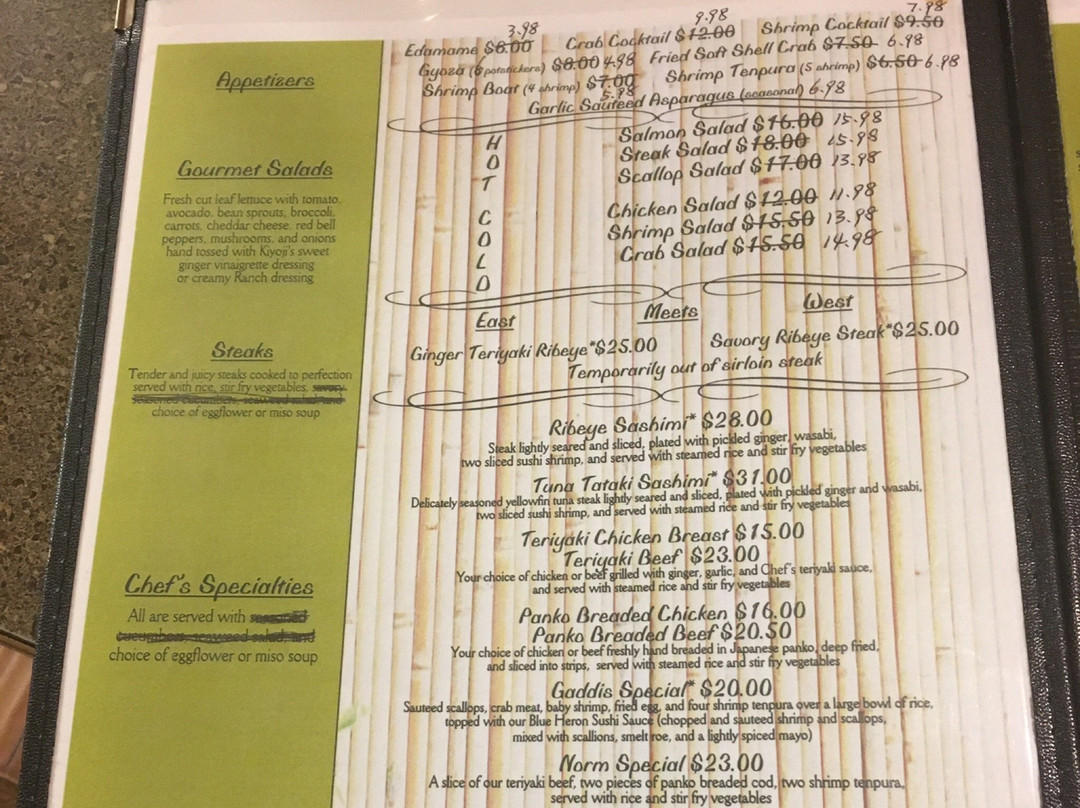 Appetizers
3.98
Edamame $6.00
9.98
Crab Cocktail $12.00
7.98
Shrimp Cocktail $9.50
Gyoza (6 potstickers) $8.00 4.98
Fried Soft Shell Crab $7.50 6.98
Shrimp Boat (4 shrimp) $7.00
5.98
Shrimp Tenpura (5 shrimp) $6.50 6.98
Garlic Sauteed Asparagus (seasonal) 6.98
Gourmet Salads
Fresh cut leaf lettuce with tomato,
avocado, bean sprouts, broccoli,
carrots, cheddar cheese, red bell
peppers, mushrooms, and onions
hand tossed with Kiyoji's sweet
ginger vinaigrette dressing
or creamy Ranch dressing
HOT
Salmon Salad $16.00 15.98
Steak Salad $18.00 15.98
Scallop Salad $17.00 13.98
COLD
Chicken Salad $12.00 11.98
Shrimp Salad $15.50 13.98
Crab Salad $15.50 14.98
Steaks
Tender and juicy steaks cooked to perfection
served with rice, stir fry vegetables, savory
seasoned cucumbers, seaweed salad and
choice of eggflower or miso soup
East Meets West
Ginger Teriyaki Ribeye*$25.00
Savory Ribeye Steak*$25.00
Temporarily out of sirloin steak
Chef's Specialties
All are served with seasoned
cucumbers, seaweed salad, and
choice of eggflower or miso soup
Ribeye Sashimi* $28.00
Steak lightly seared and sliced, plated with pickled ginger, wasabi,
two sliced sushi shrimp, and served with steamed rice and stir fry vegetables
Tuna Tataki Sashimi* $31.00
Delicately seasoned yellowfin tuna steak lightly seared and sliced, plated with pickled ginger and wasabi,
two sliced sushi shrimp, and served with steamed rice and stir fry vegetables
Teriyaki Chicken Breast $15.00
Teriyaki Beef $23.00
Your choice of chicken or beef grilled with ginger, garlic, and Chef's teriyaki sauce,
and served with steamed rice and stir fry vegetables
Panko Breaded Chicken $16.00
Panko Breaded Beef $20.50
Your choice of chicken or beef freshly hand breaded in Japanese panko, deep fried,
and sliced into strips, served with steamed rice and stir fry vegetables
Gaddis Special* $20.00
Sauteed scallops, crab meat, baby shrimp, fried egg, and four shrimp tenpura over a large bowl of rice,
topped with our Blue Heron Sushi Sauce (chopped and sauteed shrimp and scallops,
mixed with scallions, smelt roe, and a lightly spiced mayo)
Norm Special $23.00
A slice of our teriyaki beef, two pieces of panko breaded cod, two shrimp tenpura,
served with rice and stir fry vegetables